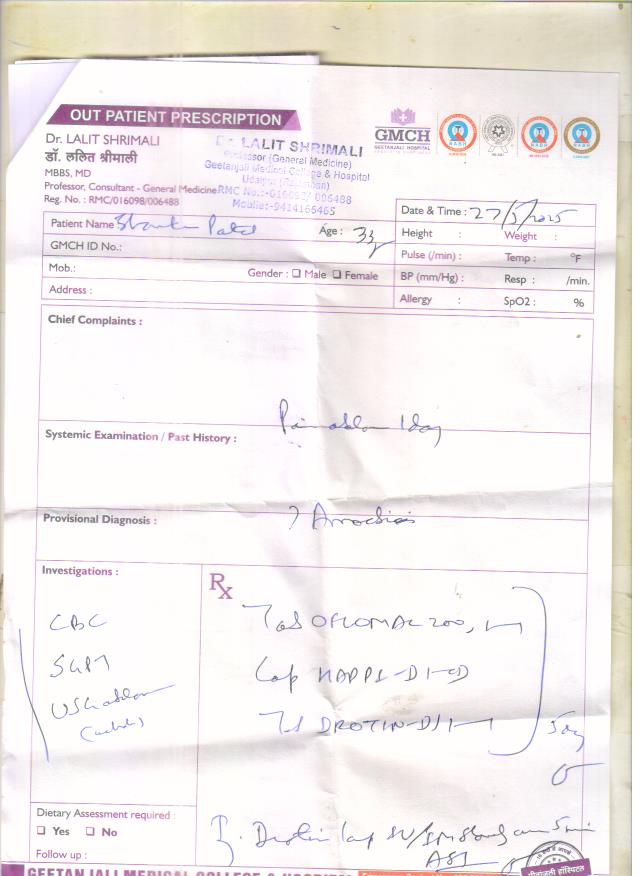 OUT PATIENT PRESCRIPTION
Dr. LALIT SHRIMALI
डॉ. ललित श्रीमाली
MBBS, MD
Professor, Consultant - General Medicine
Reg. No. : RMC/016098/006488
Dr. LALIT SHRIMALI
Professor (General Medicine)
Geetanjali Medical College & Hospital
Udaipur (Rajasthan)
RMC No.:-016098/ 006488
Moblie:-9414165465
GMCH
GEETANJALI HOSPITAL
NABH
NABH
Patient Name
Patel
Age : 33
Date & Time : 27/5/2025
GMCH ID No.:
Height : Weight :
Mob.:
Gender : Male Female
Pulse (/min) : Temp : °F
BP (mm/Hg) : Resp : /min.
Address :
Allergy : SpO2 : %
Chief Complaints :
Pain abdomen 1day
Systemic Examination / Past History :
Provisional Diagnosis :
Investigations :
CBC
SGPT
USG abdomen
Rx
Tab OFLOMAC 200
Cap HAPPI-D
DROTIN-D
5day
Drotin
Dietary Assessment required :
Yes No
Follow up :
GEETANJALI MEDICAL COLLEGE & HOSPITAL